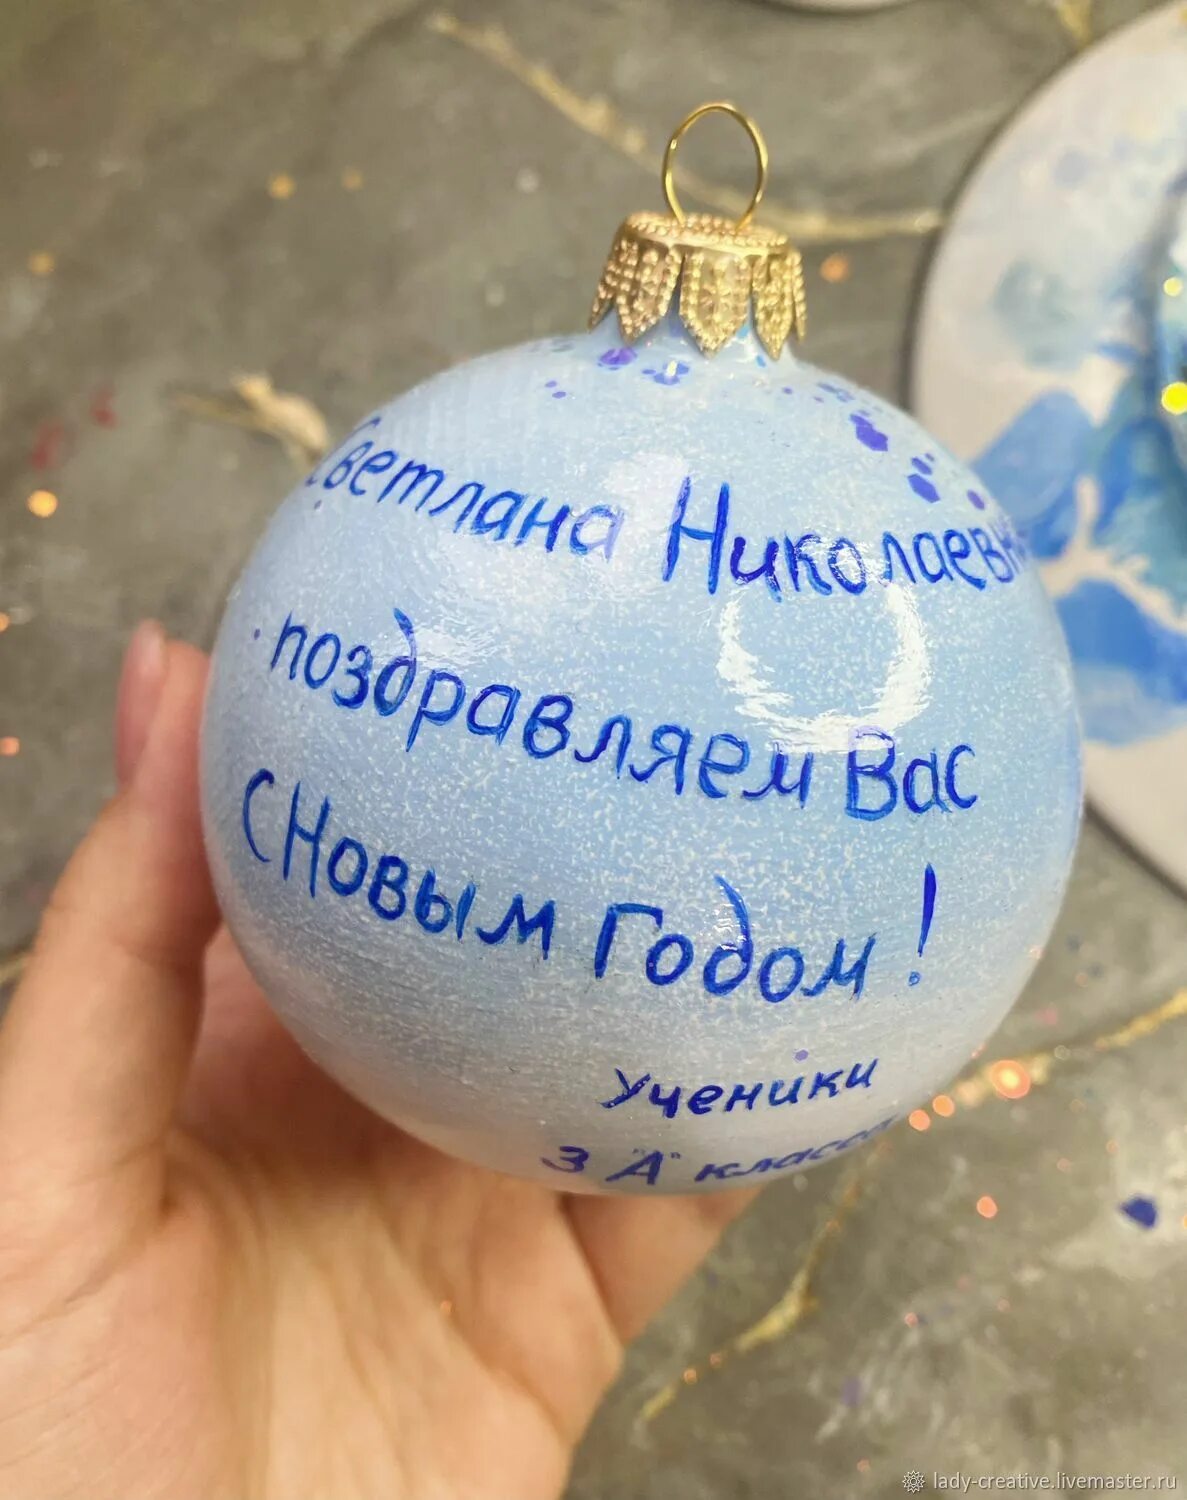 Светлана Николаевна
поздравляем Вас
с Новым Годом!
Ученики
3 "А" класса
lady-creative.livemaster.ru